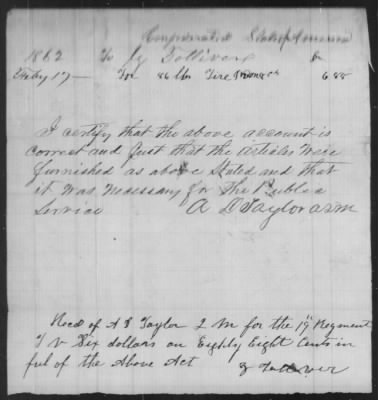 Confederate States America
1862 To G Tolliver Dr
Feby 17 — For 86 lbs Tire 6.88
I certify that the above account is
correct and Just that the articles were
furnished as above Stated and that
it was necessary for the Public
Service A D Taylor aqm
Recd of A D Taylor Q M for the 19th Regiment
T V Six dollars an Eighty Eight Cents in
ful of the Above Act
G Tolliver